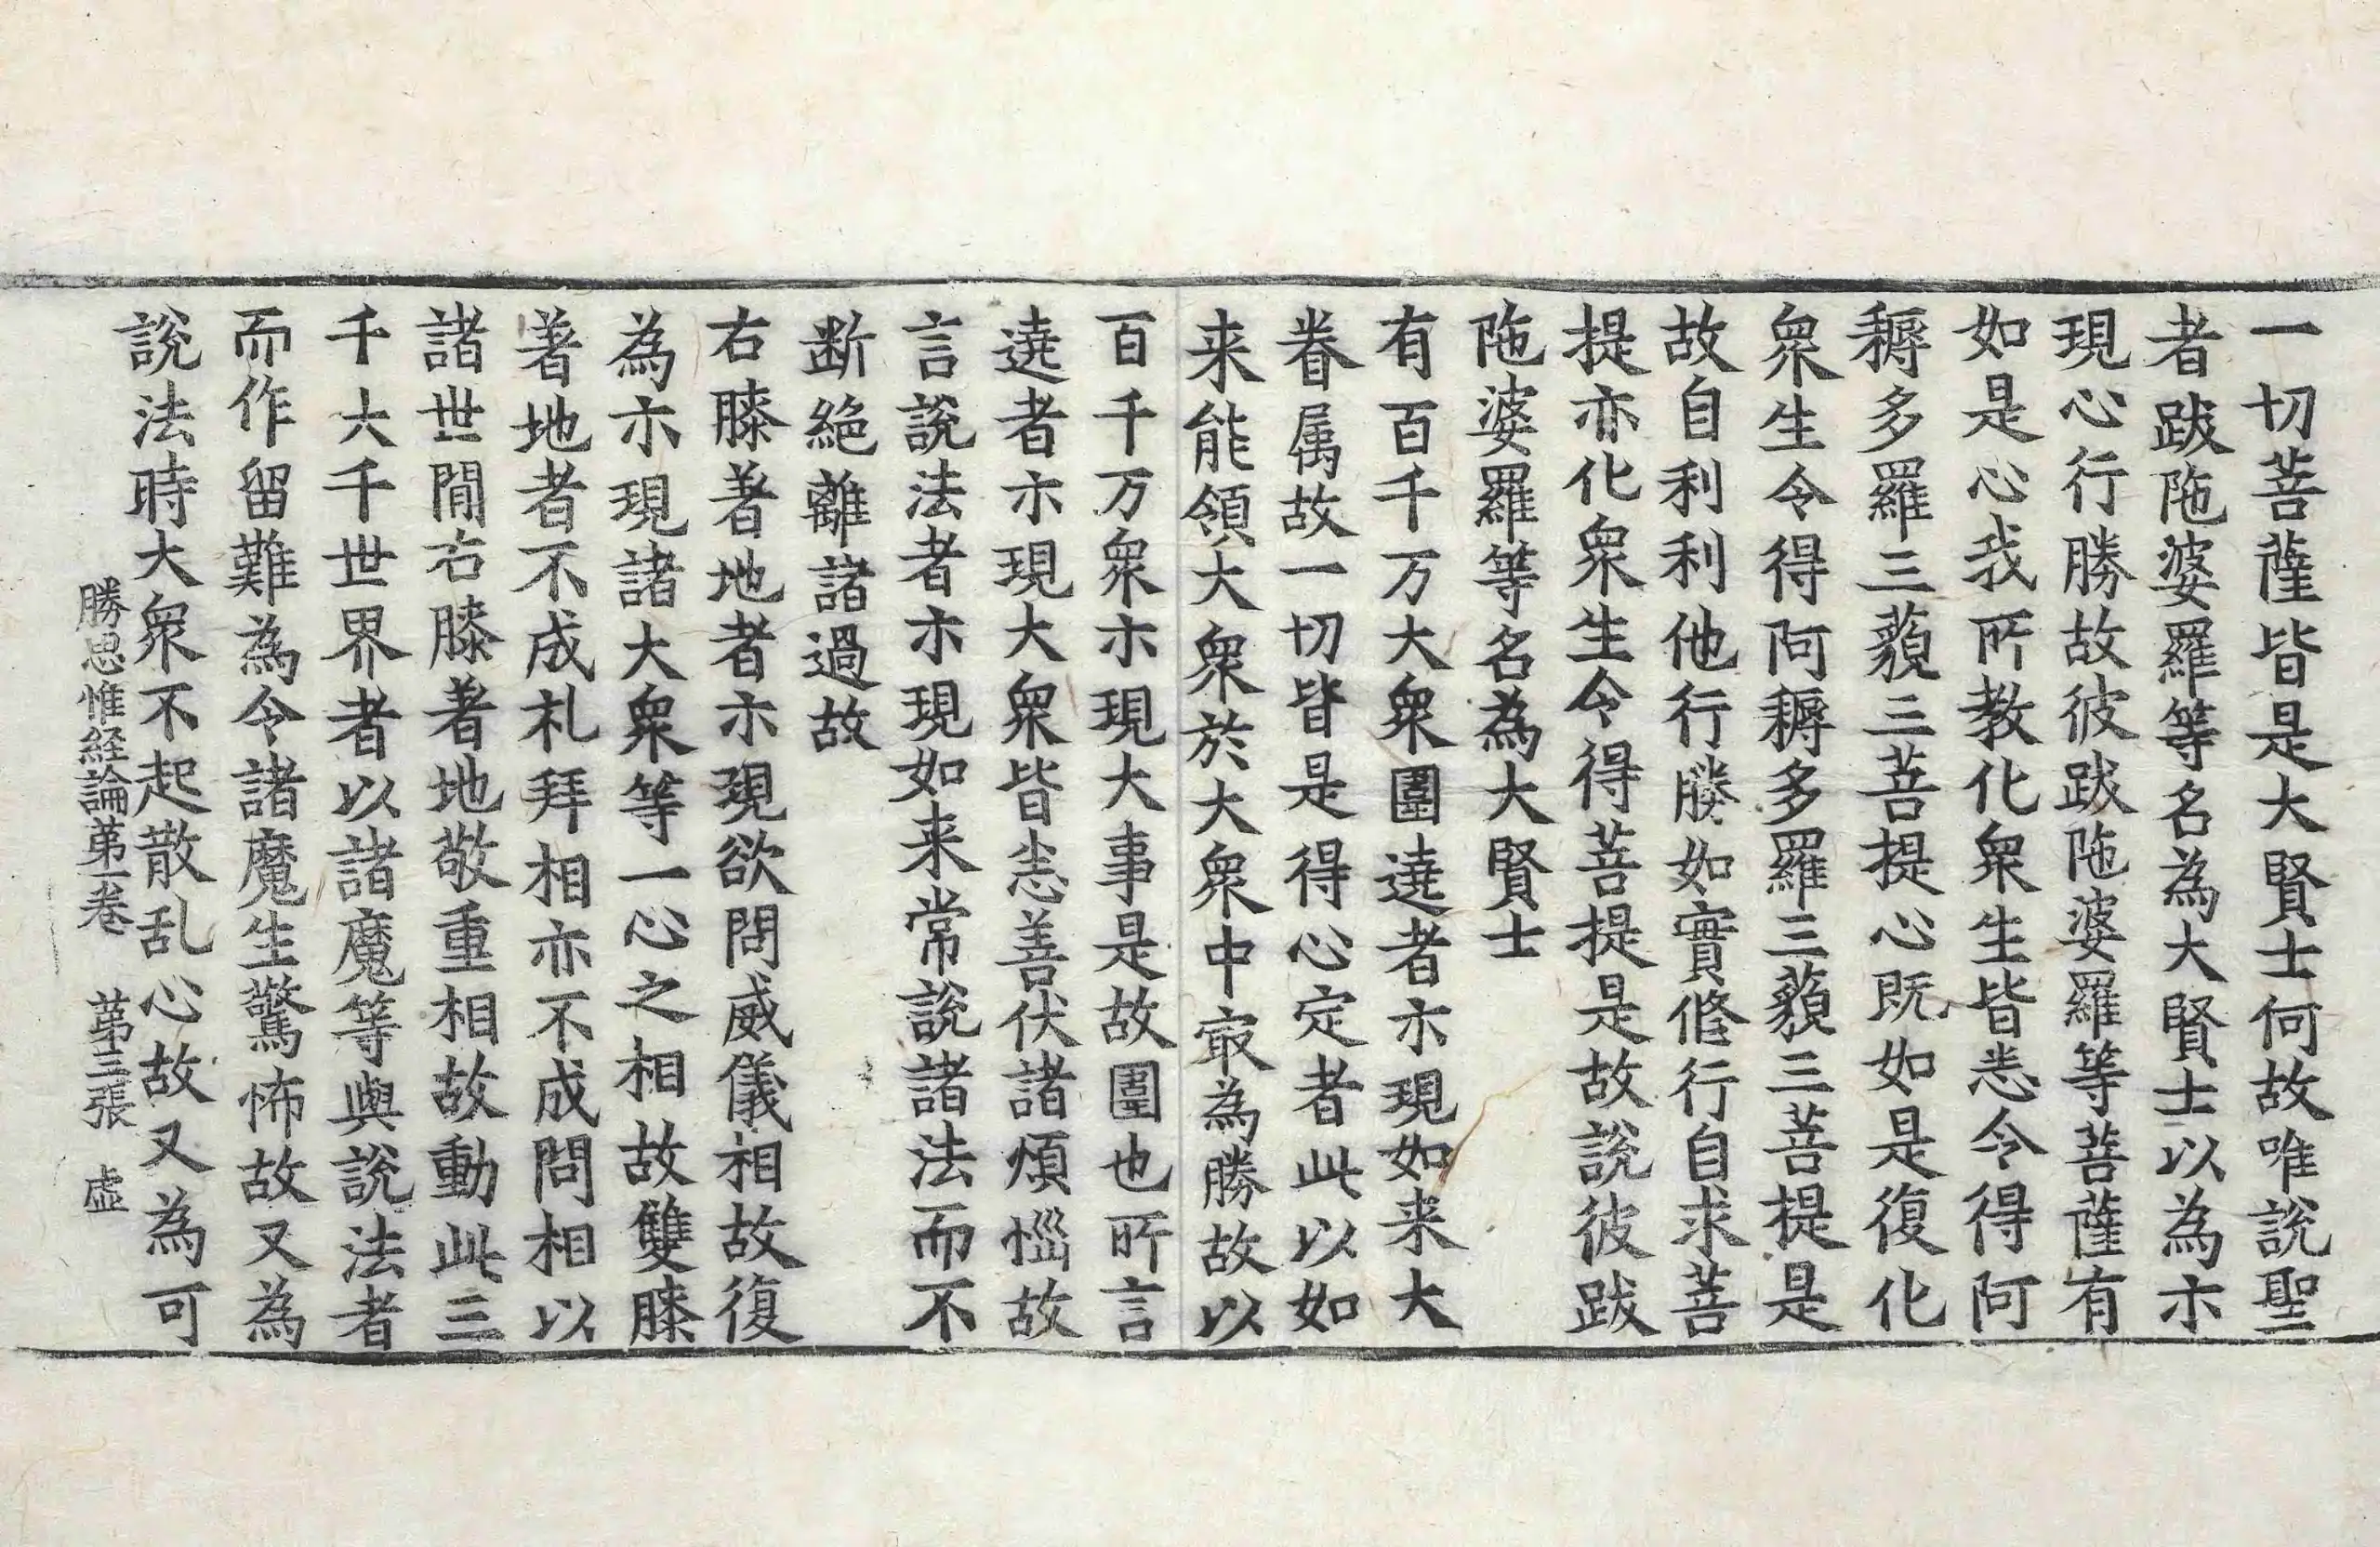 一切菩薩皆是大賢士何故唯說聖
者跋陁婆羅等名為大賢士以為示
現心行勝故彼跋陁婆羅等菩薩有
如是心我所教化衆生皆悉令得阿
耨多羅三藐三菩提心既如是復化
衆生令得阿耨多羅三藐三菩提是
故自利利他行勝如實脩行自求菩
提亦化衆生令得菩提是故說彼跋
陁婆羅等名為大賢士
有百千万大衆圍遶者示現如来大
眷属故一切皆是得心定者此以如
来能領大衆於大衆中㝡為勝故以
百千万衆示現大事是故圍也所言
遶者示現大衆皆悉善伏諸煩惱故
言說法者示現如来常說諸法而不
断絶離諸過故
右膝著地者示現欲問威儀相故復
為示現諸大衆等一心之相故雙膝
著地者不成礼拜相亦不成問相以
諸世間右膝著地敬重相故動此三
千大千世界者以諸魔等與說法者
而作留難為令諸魔生驚怖故又為
說法時大衆不起散乱心故又為可
勝思惟経論苐一卷 苐三張 虚